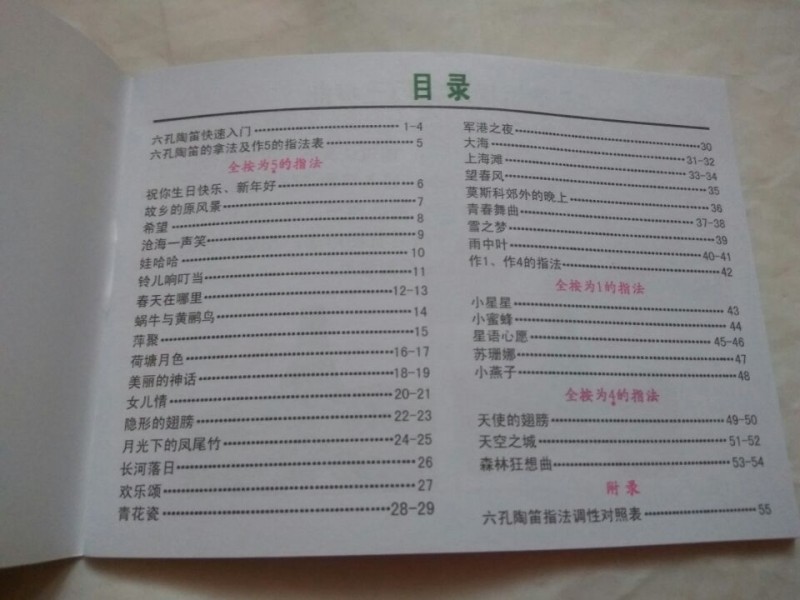 目录
六孔陶笛快速入门 1-4
六孔陶笛的拿法及作5的指法表 5
全按为5的指法
祝你生日快乐、新年好 6
故乡的原风景 7
希望 8
沧海一声笑 9
娃哈哈 10
铃儿响叮当 11
春天在哪里 12-13
蜗牛与黄鹂鸟 14
萍聚 15
荷塘月色 16-17
美丽的神话 18-19
女儿情 20-21
隐形的翅膀 22-23
月光下的凤尾竹 24-25
长河落日 26
欢乐颂 27
青花瓷 28-29
军港之夜 30
大海 31-32
上海滩 33-34
望春风 35
莫斯科郊外的晚上 36
青春舞曲 37-38
雪之梦 39
雨中叶 40-41
作1、作4的指法 42
全按为1的指法
小星星 43
小蜜蜂 44
星语心愿 45-46
苏珊娜 47
小燕子 48
全按为4的指法
天使的翅膀 49-50
天空之城 51-52
森林狂想曲 53-54
附录
六孔陶笛指法调性对照表 55